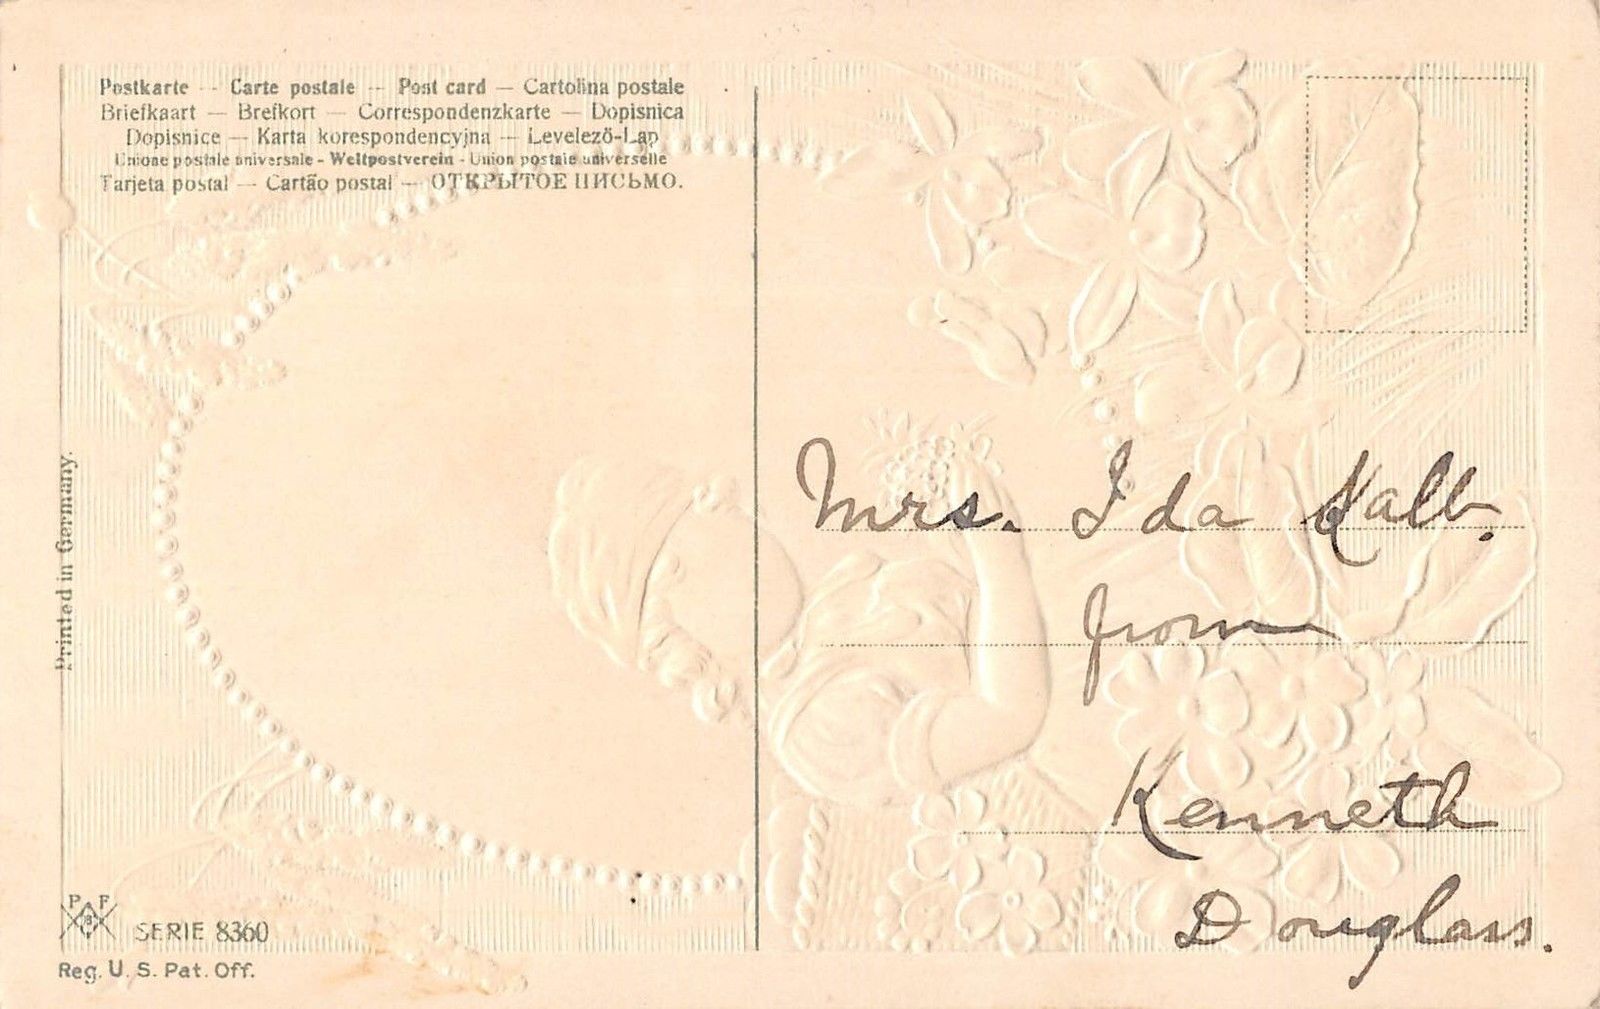 Postkarte — Carte postale — Post card — Cartolina postale
Briefkaart — Brefkort — Correspondenzkarte — Dopisnica
Dopisnice — Karta korespondencyjna — Levelező-Lap
Unione postale universale - Weltpostverein - Union postale universelle
Tarjeta postal — Cartão postal — ОТКРЫТОЕ ПИСЬМО.
Printed in Germany.
Mrs. Ida Kalb.
from
Kenneth
Douglass.
P F
B
SERIE 8360
Reg. U. S. Pat. Off.